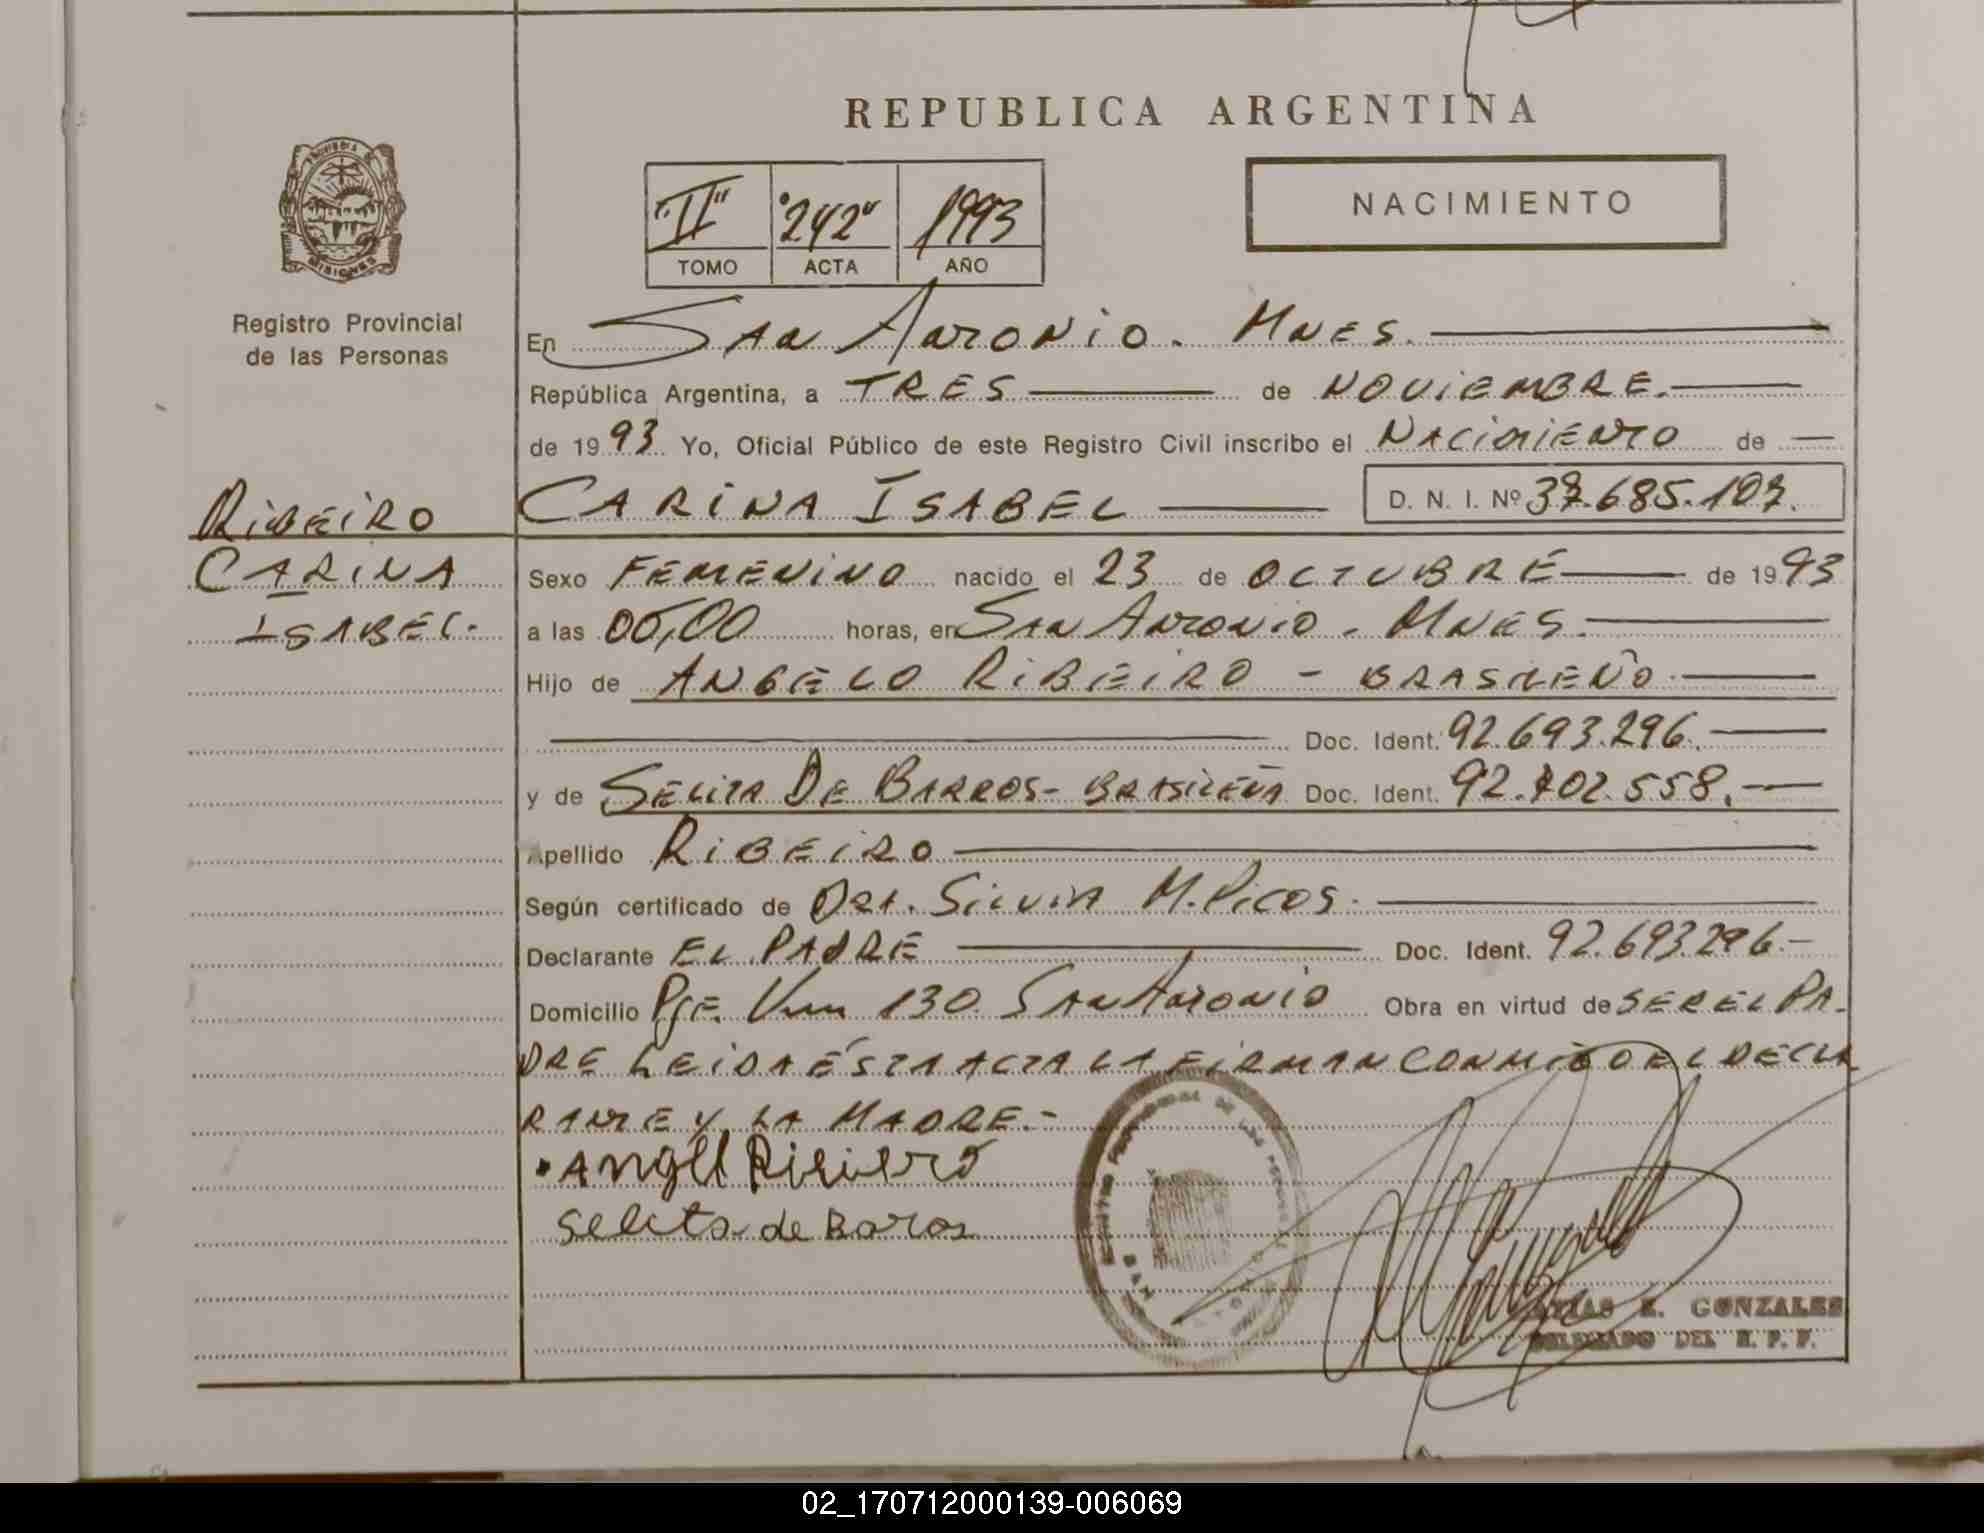 REPUBLICA ARGENTINA
"II" "242" 1993
TOMO ACTA AÑO
NACIMIENTO
MISIONES
Registro Provincial
de las Personas
En San Antonio. Mnes.
República Argentina, a TRES de NOVIEMBRE.
de 1993 Yo, Oficial Público de este Registro Civil inscribo el NACIMIENTO de
RIBEIRO
CARINA
ISABEL.
CARINA ISABEL D. N. I. Nº 37.685.107.
Sexo FEMENINO nacido el 23 de OCTUBRE de 1993
a las 05,00 horas, en San Antonio. Mnes.
Hijo de ANGELO RIBEIRO - BRASILEÑO.
Doc. Ident. 92.693.296.
y de SELITA DE BARROS - BRASILEÑA Doc. Ident. 92.702.558.
Apellido RIBEIRO
Según certificado de DRA. SILVIA M. PICOS.
Declarante EL PADRE Doc. Ident. 92.693.296.-
Domicilio Pje. 130. San Antonio Obra en virtud de SER EL PA-
DRE LEIDA ÉSTA ACTA LA FIRMAN CONMIGO EL DECLA
RANTE Y LA MADRE.-
Selita de Baros
GONZALES
DEL R. P. P.
02_170712000139-006069